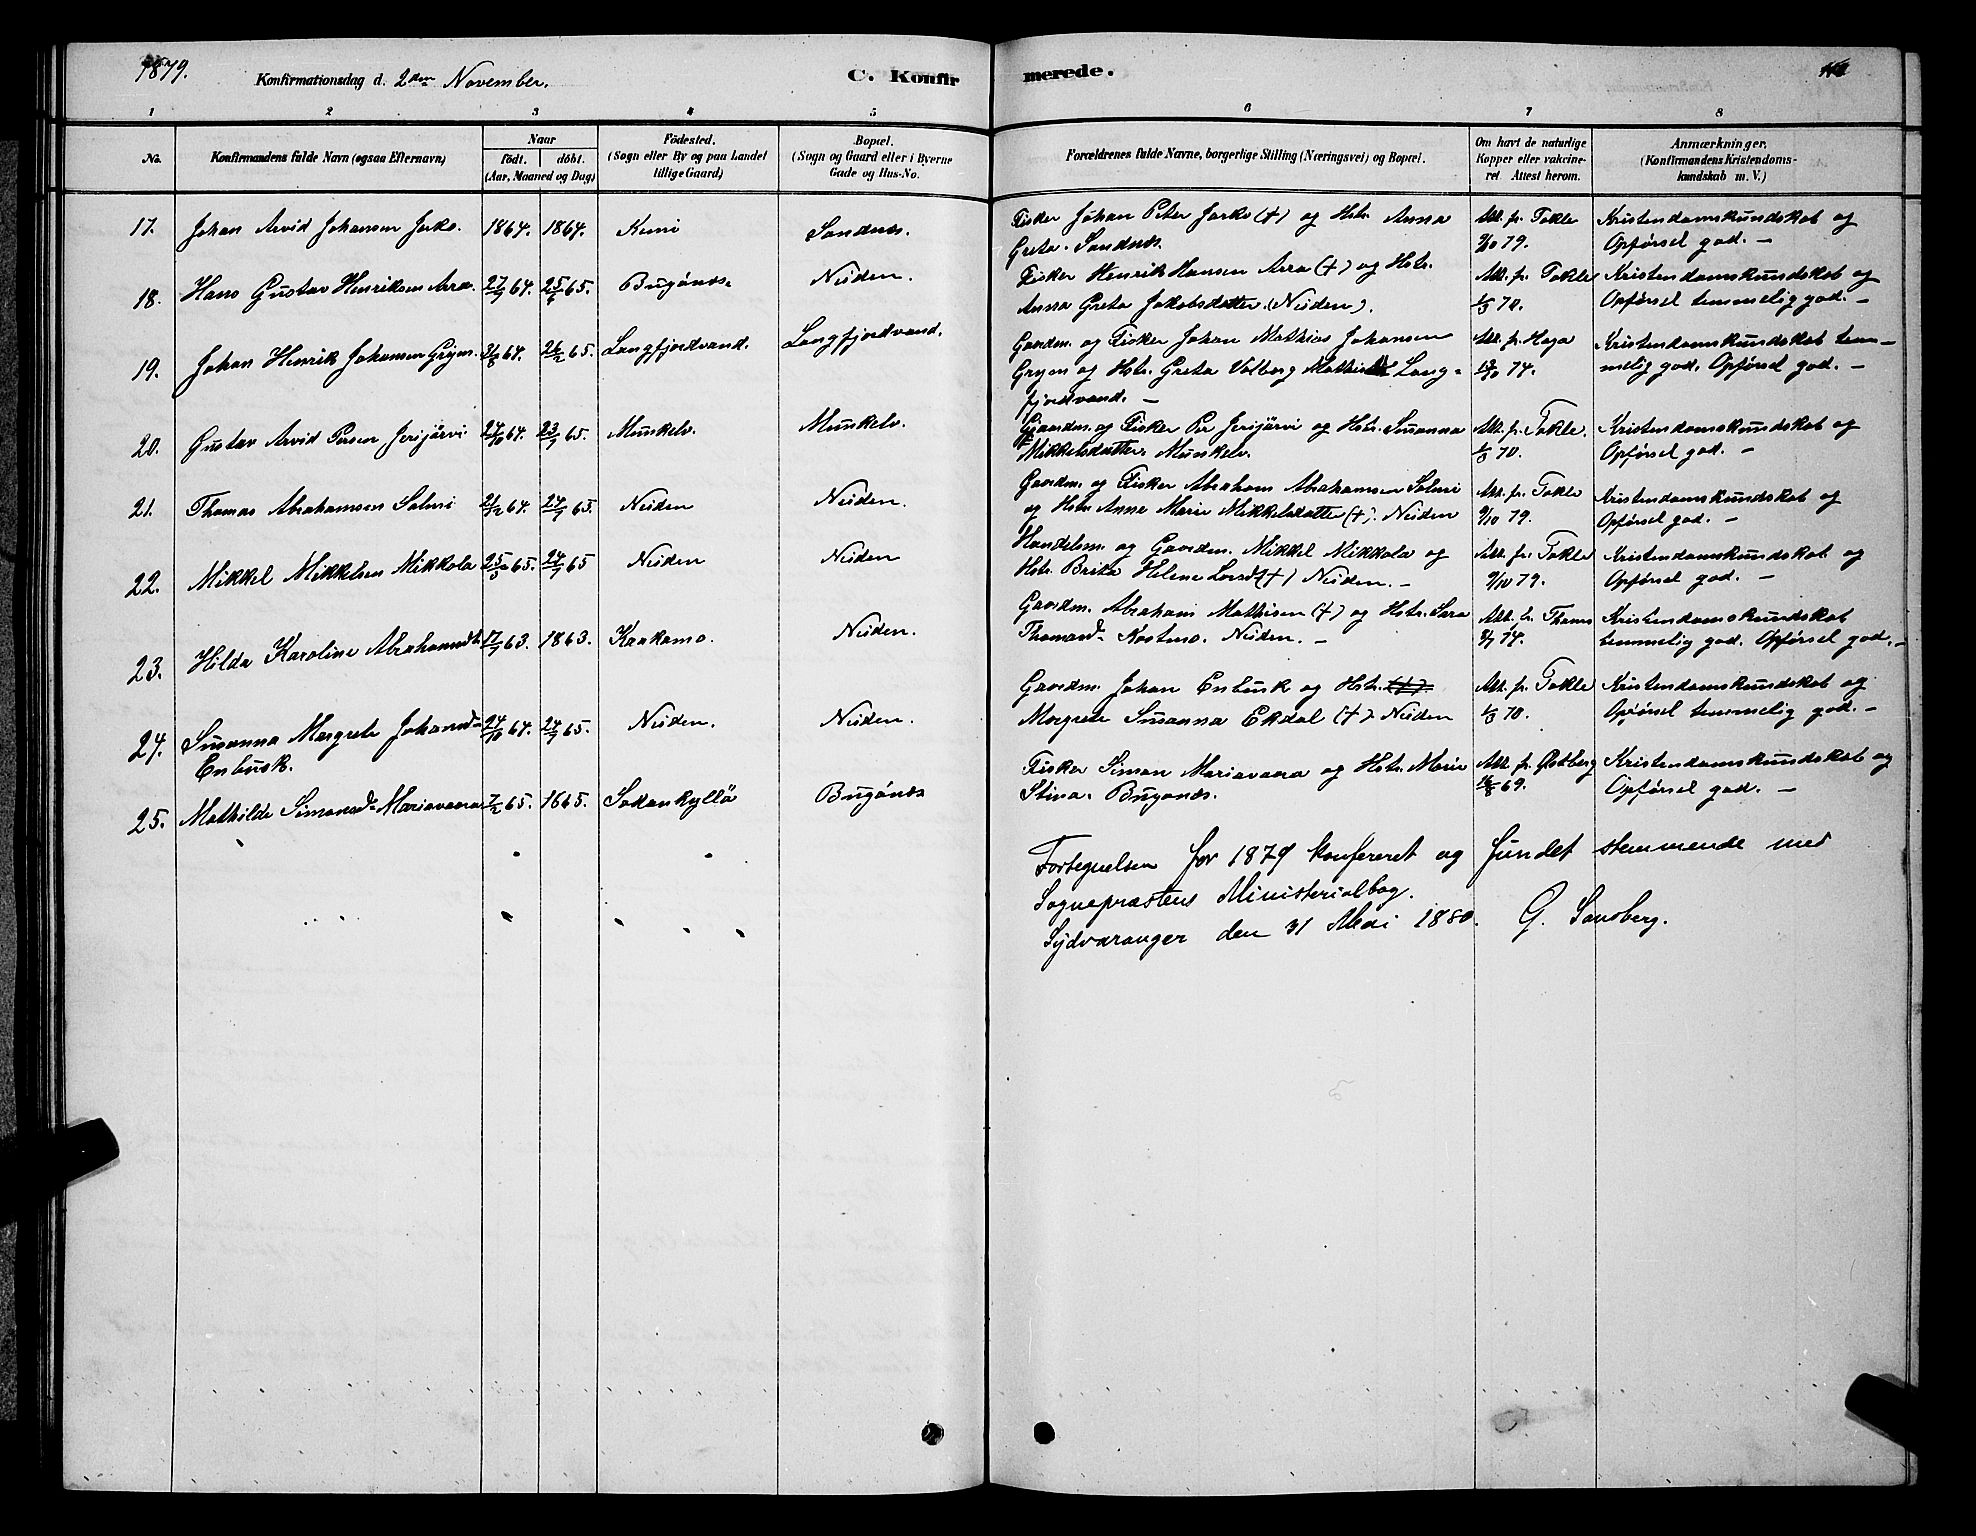 1879.
Konfirmationsdag d. 2den November.
C. Konfirmerede.
1 2 3 4 5 6 7 8
No.
Konfirmandens fulde Navn (ogsaa Efternavn)
Naar
født. døbt.
(Aar, Maaned og Dag)
Fødested.
(Sogn eller By og paa Landet
tillige Gaard)
Bopæl.
(Sogn og Gaard eller i Byerne
Gade og Hus-No.
Forældrenes fulde Navne, borgerlige Stilling (Næringsvei) og Bopæl.
Om havt de naturlige
Kopper eller vakcine-
ret Attest herom.
Anmærkninger.
(Konfirmandens Kristendoms-
kundskab m. V.)
17. Johan Arvid Johansen Jarko. 1864. 1864. Kemi Sandnes. Fisker Johan Peter Jarko (+) og Hstr. Anna Att. fr. Tokle Kristendomskundskab og
Greta. Sandnes. 9/10 79. Opførsel god. —
18. Hans Gustav Henriksen Arra. 27/9 64. 25/6 65. Bugønes. Neiden. Fisker Henrik Hansen Arra (+) og Hstr. Att. fr. Tokle Kristendomskundskab og
Anna Greta Jakobsdatter. (Neiden). 1/3 70. Opførsel temmelig god. —
19. Johan Henrik Johansen Gryen. 64. 26/2 65. Langfjordvand. Langfjordvand. Gaardm. og Fisker Johan Mathias Johansen Att. fr. Haga Kristendomskundskab tem-
Gryen og Hstr. Greta Volborg Lang- 74. melig god. Opførsel god. —
fjordvand. —
20. Gustav Arvid Persen Jerijärvi 24/10 64. 23/7 65. Munkelv. Munkelv. Gaardm. og Fisker Per Jerijärvi og Hstr. Susanna Att. fr. Tokle. Kristendomskundskab og
Mikkelsdatter. Munkelv. 1/3 70. Opførsel god. —
21. Thomas Abrahamsen Salmi 21/12 64. 24/7 65. Neiden Neiden. Gaardm. og Fisker Abraham Abrahamsen Salmi Att. fr. Tokle Kristendomskundskab og
og Hstr. Anna Maria Mikkelsdatter (+). Neiden 9/10 79. Opførsel god. —
22. Mikkel Mikkelsen Mikkola 25/5 65. 24/7 65 Neiden Neiden Handelsm. og Gaardm. Mikkel Mikkola og Att. fr. Tokle Kristendomskundskab og
Hstr. Brita Helene Larsd (+) Neiden. — 9/10 79. Opførsel god. —
23. Hilda Karoline Abrahamsdt. 17/7 63. 1863. Kaakamo. Neiden. Gaardm. Abraham Mathisen (+) og Hstr. Sara Att. fr. Thams Kristendomskundskab
Thomasd. Kostmo. Neiden. — 8/7 74. temmelig god. Opførsel god. —
24. Susanna Margrete Johansd. 24/10 64. 24/7 65. Neiden. Neiden. Gaardm. Johan Enbusk og Hstr. (+). Att. fr. Tokle Kristendomskundskab og
Enbusk. Margrete Susanna Ekdal (+) Neiden 1/3 70. Opførsel temmelig god. —
25. Mathilde Simonsd. Mariavaara 7/2 65. 1865. Sodankyllä Bugønes Fisker Simon Mariavaara og Hstr. Maria Att. fr. Ostberg Kristendomskundskab og
Stina. Bugønes. 69. Opførsel god. —
Fortegnelsen for 1879 konfereret og fundet stemmende med
Sognepræstens Ministerialbog.
Sydvaranger den 31 Mai 1880. G. Sandberg.